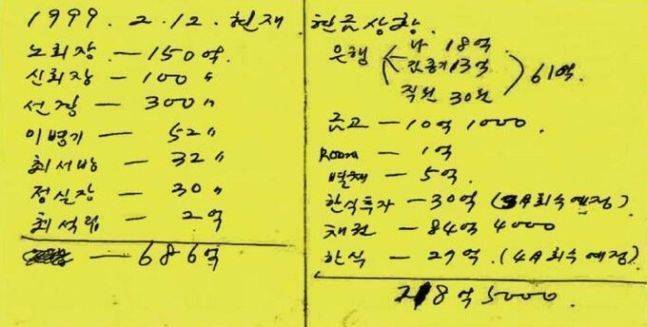 1999. 2. 12. 현재
노회장 — 150억.
신회장 — 100 〃
선장 — 300 〃
이병기 — 52 〃
최서방 — 32 〃
정실장 — 30 〃
최석립 — 2억
— 686억
현금상황.
은행 나 18억.
13억
직원 30억
61억.
금고 — 10억 1000.
Room — 1억
별채 — 5억.
한식투자 — 30억 (3A회수예정)
채권 — 84억 4000
한식 — 27억. (4A회수예정)
218억 5000.